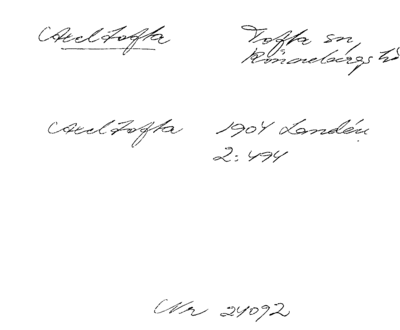 Axel Tofta Tofta sn
Rönnebergs hd
Axel Tofta 1904 Landén
2:494
Nr 24092